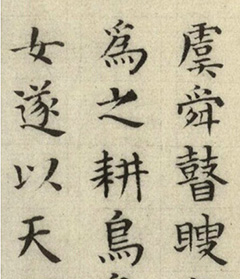 虞舜瞽瞍
爲之耕鳥
女遂以天